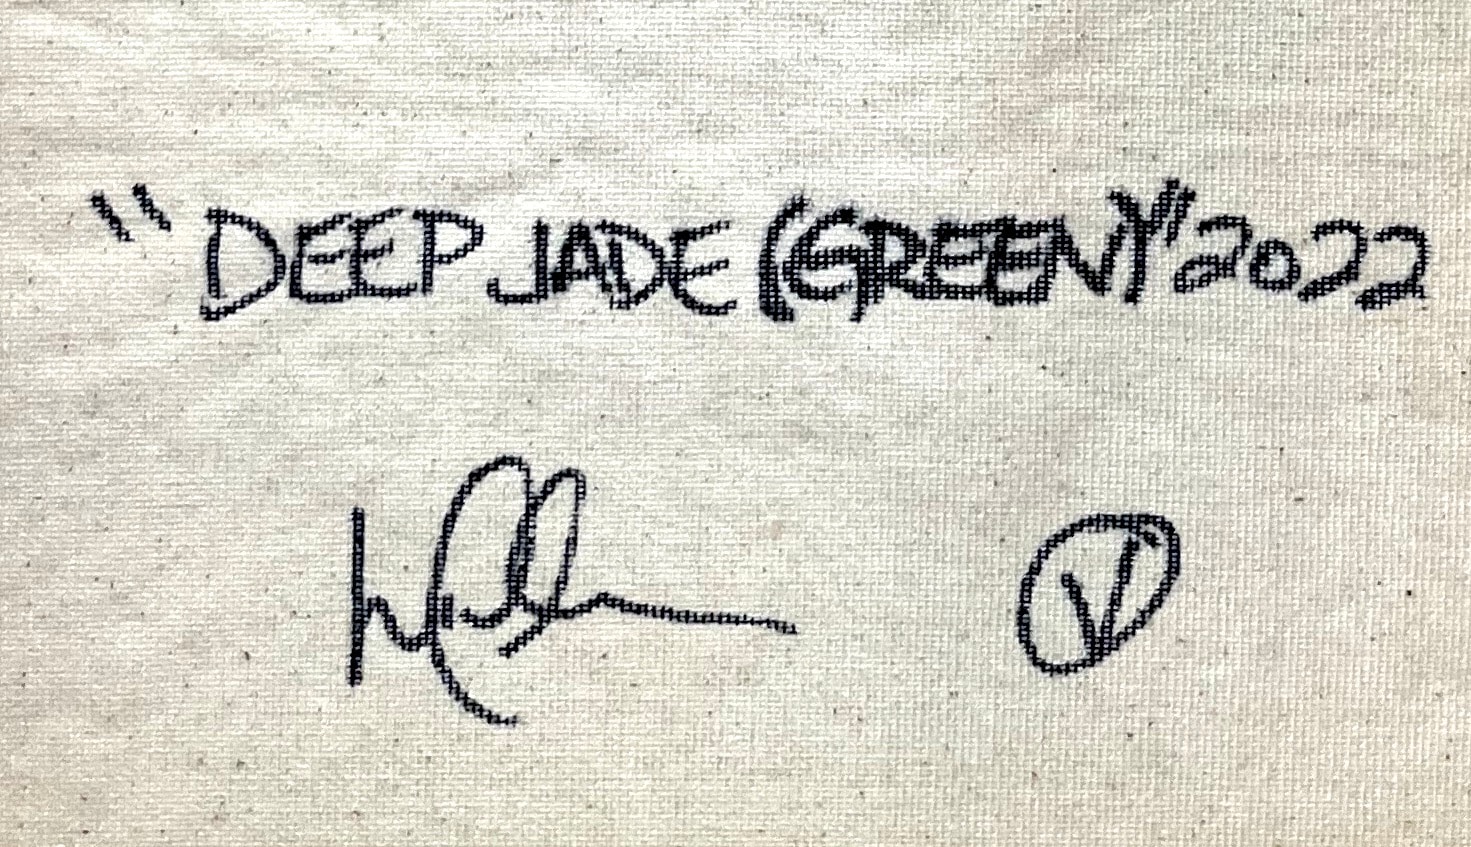 "DEEP JADE (GREEN)" 2022
V